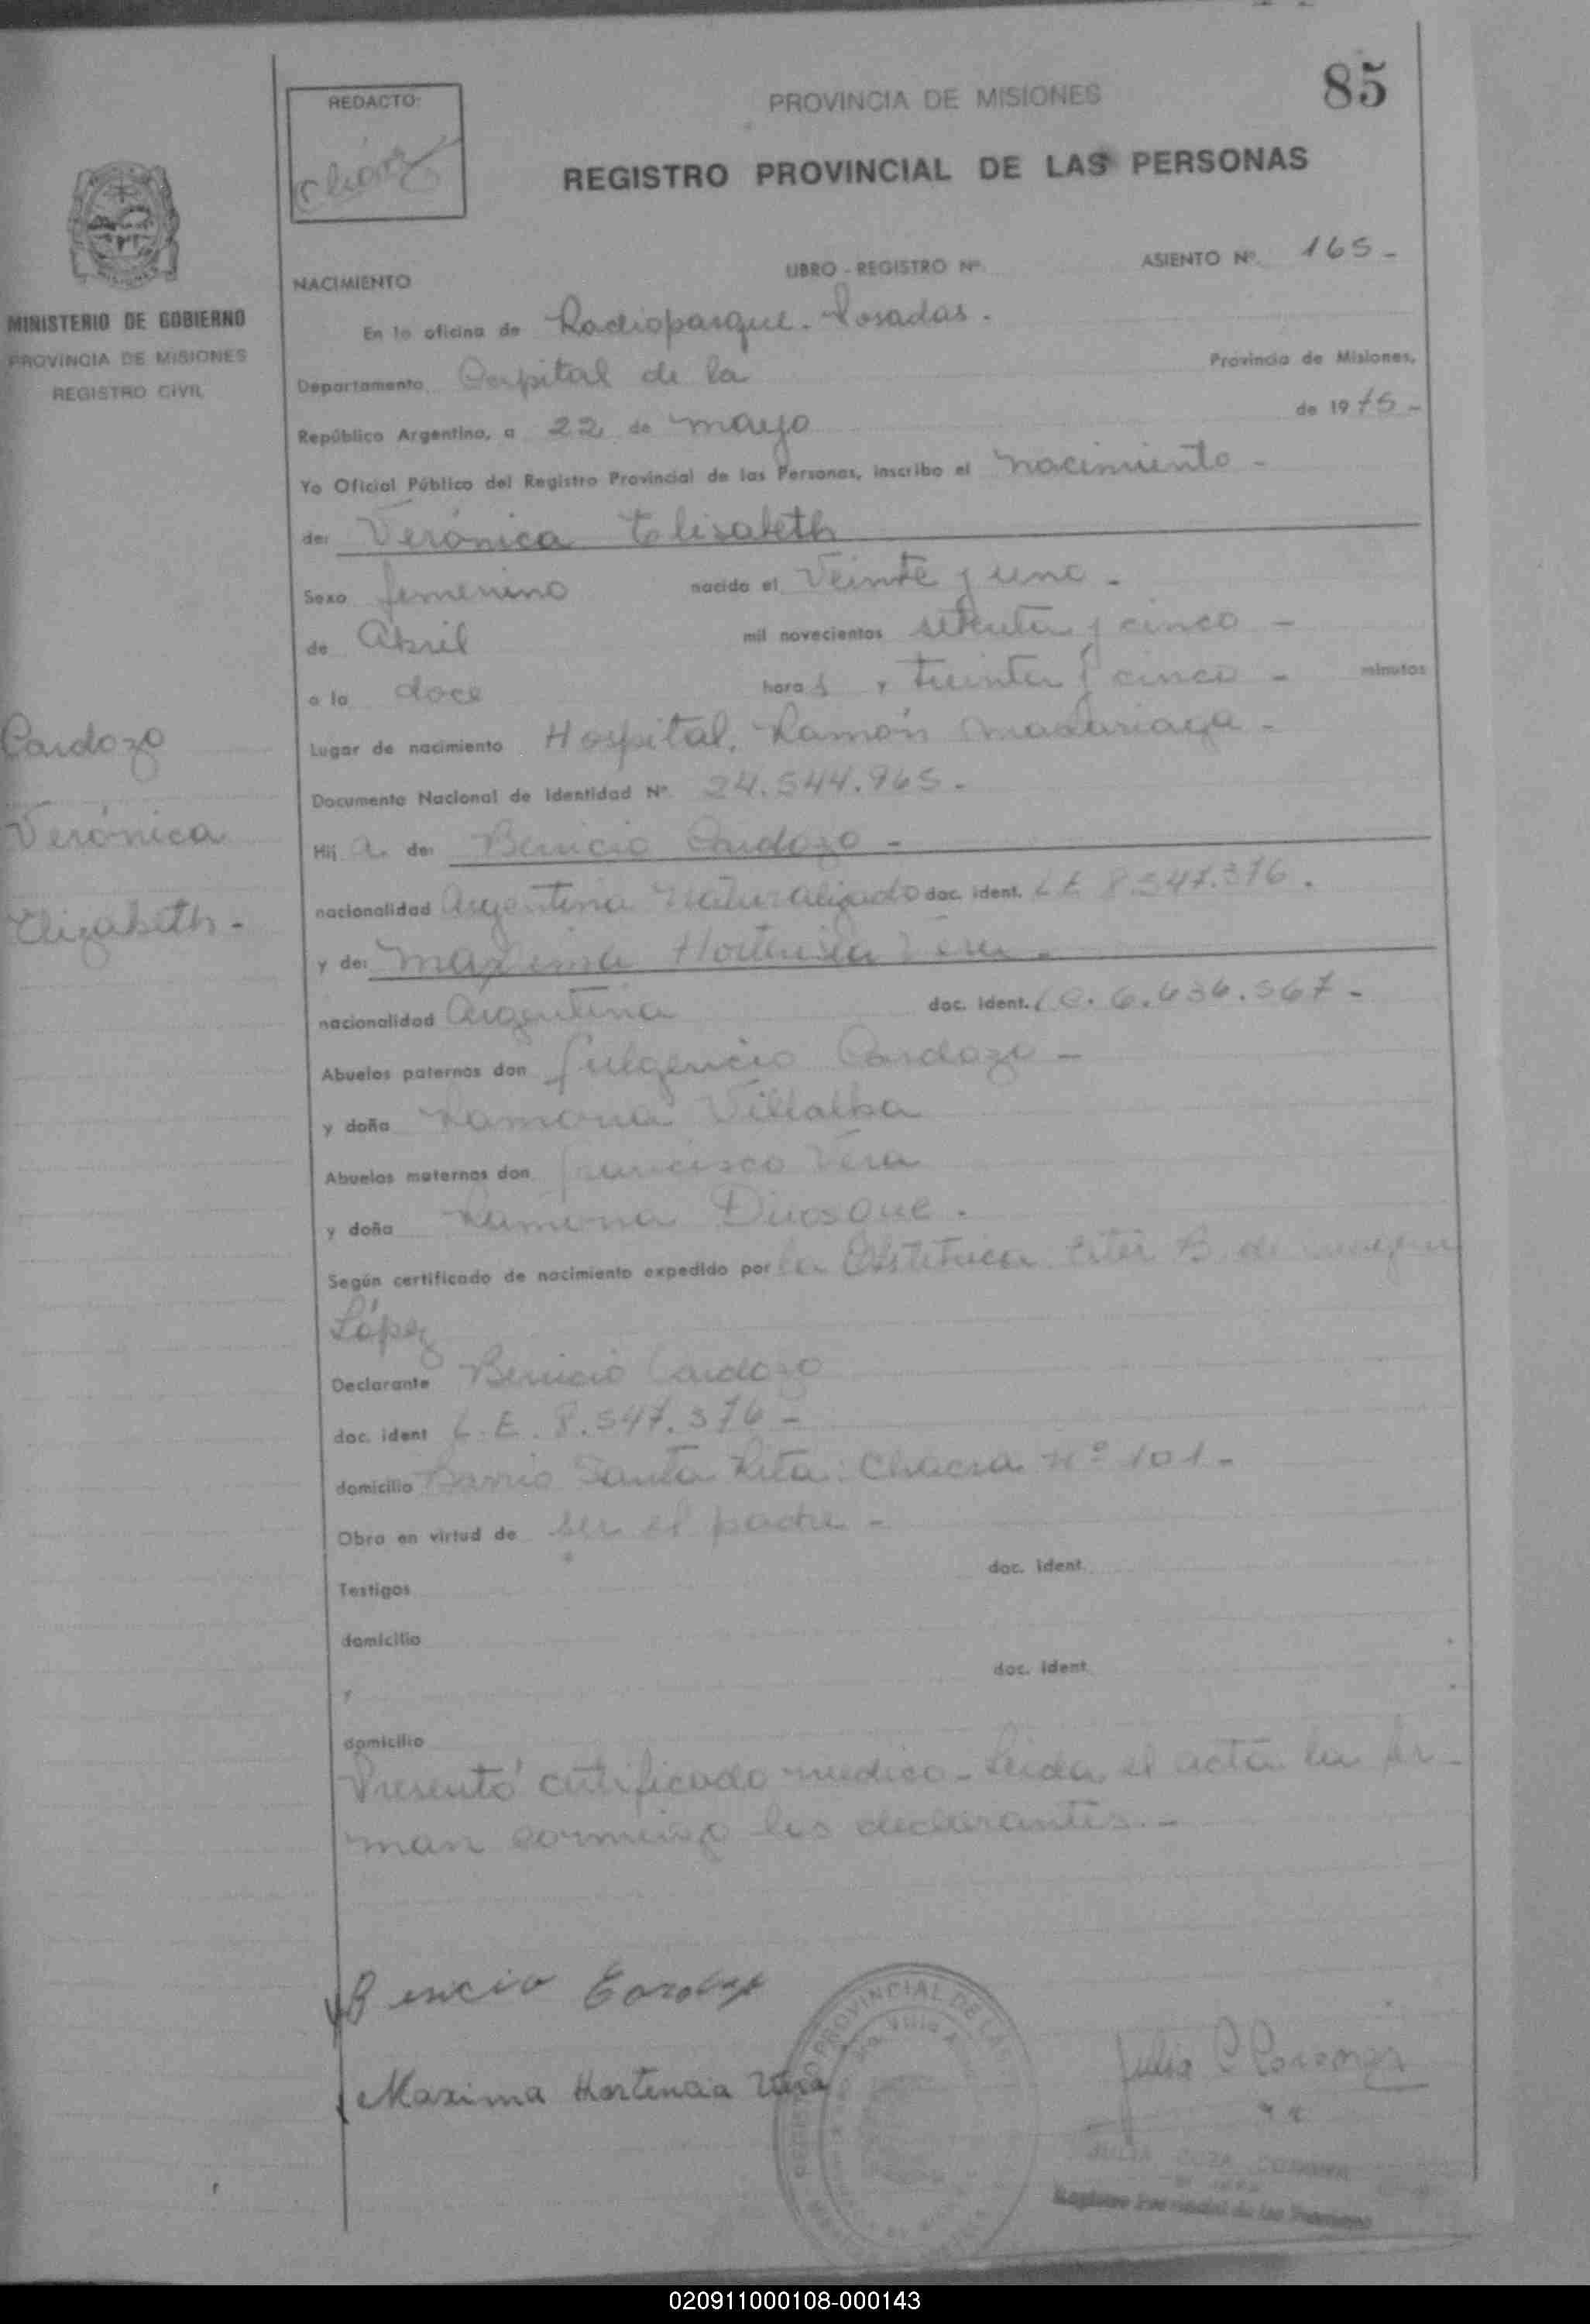 85
REDACTO:
PROVINCIA DE MISIONES
REGISTRO PROVINCIAL DE LAS PERSONAS
MINISTERIO DE GOBIERNO
PROVINCIA DE MISIONES
REGISTRO CIVIL
NACIMIENTO LIBRO - REGISTRO Nº. ASIENTO Nº. 165 -
En la oficina de Radioparque. Posadas.
Departamento Capital de la Provincia de Misiones,
República Argentina, a 22 de mayo de 1975 -
Yo Oficial Público del Registro Provincial de las Personas, inscribo el nacimiento -
de: Verónica Elisabeth
Sexo femenino nacido el Veinte y uno -
de Abril mil novecientos setenta y cinco -
a la doce hora s y treinta y cinco - minutos
Lugar de nacimiento Hospital. Ramón Madariaga -
Documento Nacional de Identidad Nº 24.544.965 -
Cardozo
Verónica
Elizabeth -
Hij a de: Benicio Cardozo -
nacionalidad Argentina Naturalizado doc. ident. L E 8.547.376.
y de: Maxima Hortensia Vera -
nacionalidad Argentina doc. ident. L C. 6.636.567 -
Abuelos paternos don Fulgencio Cardozo -
y doña Ramona Villalba
Abuelos maternos don Francisco Vera
y doña Ramona
Según certificado de nacimiento expedido por la Obstetrica B. de
López
Declarante Benicio Cardozo
doc. ident L. E. 8.547.376 -
domicilio Barrio Santa Rita. Chacra Nº 101 -
Obra en virtud de ser el padre -
Testigos doc. ident.
domicilio
y doc. ident.
domicilio
Presentó certificado medico - Leida el acta la fir-
man conmigo los declarantes. -
Bencio
Maxima Hortencia Vera
Registro Provincial de las Personas
020911000108-000143